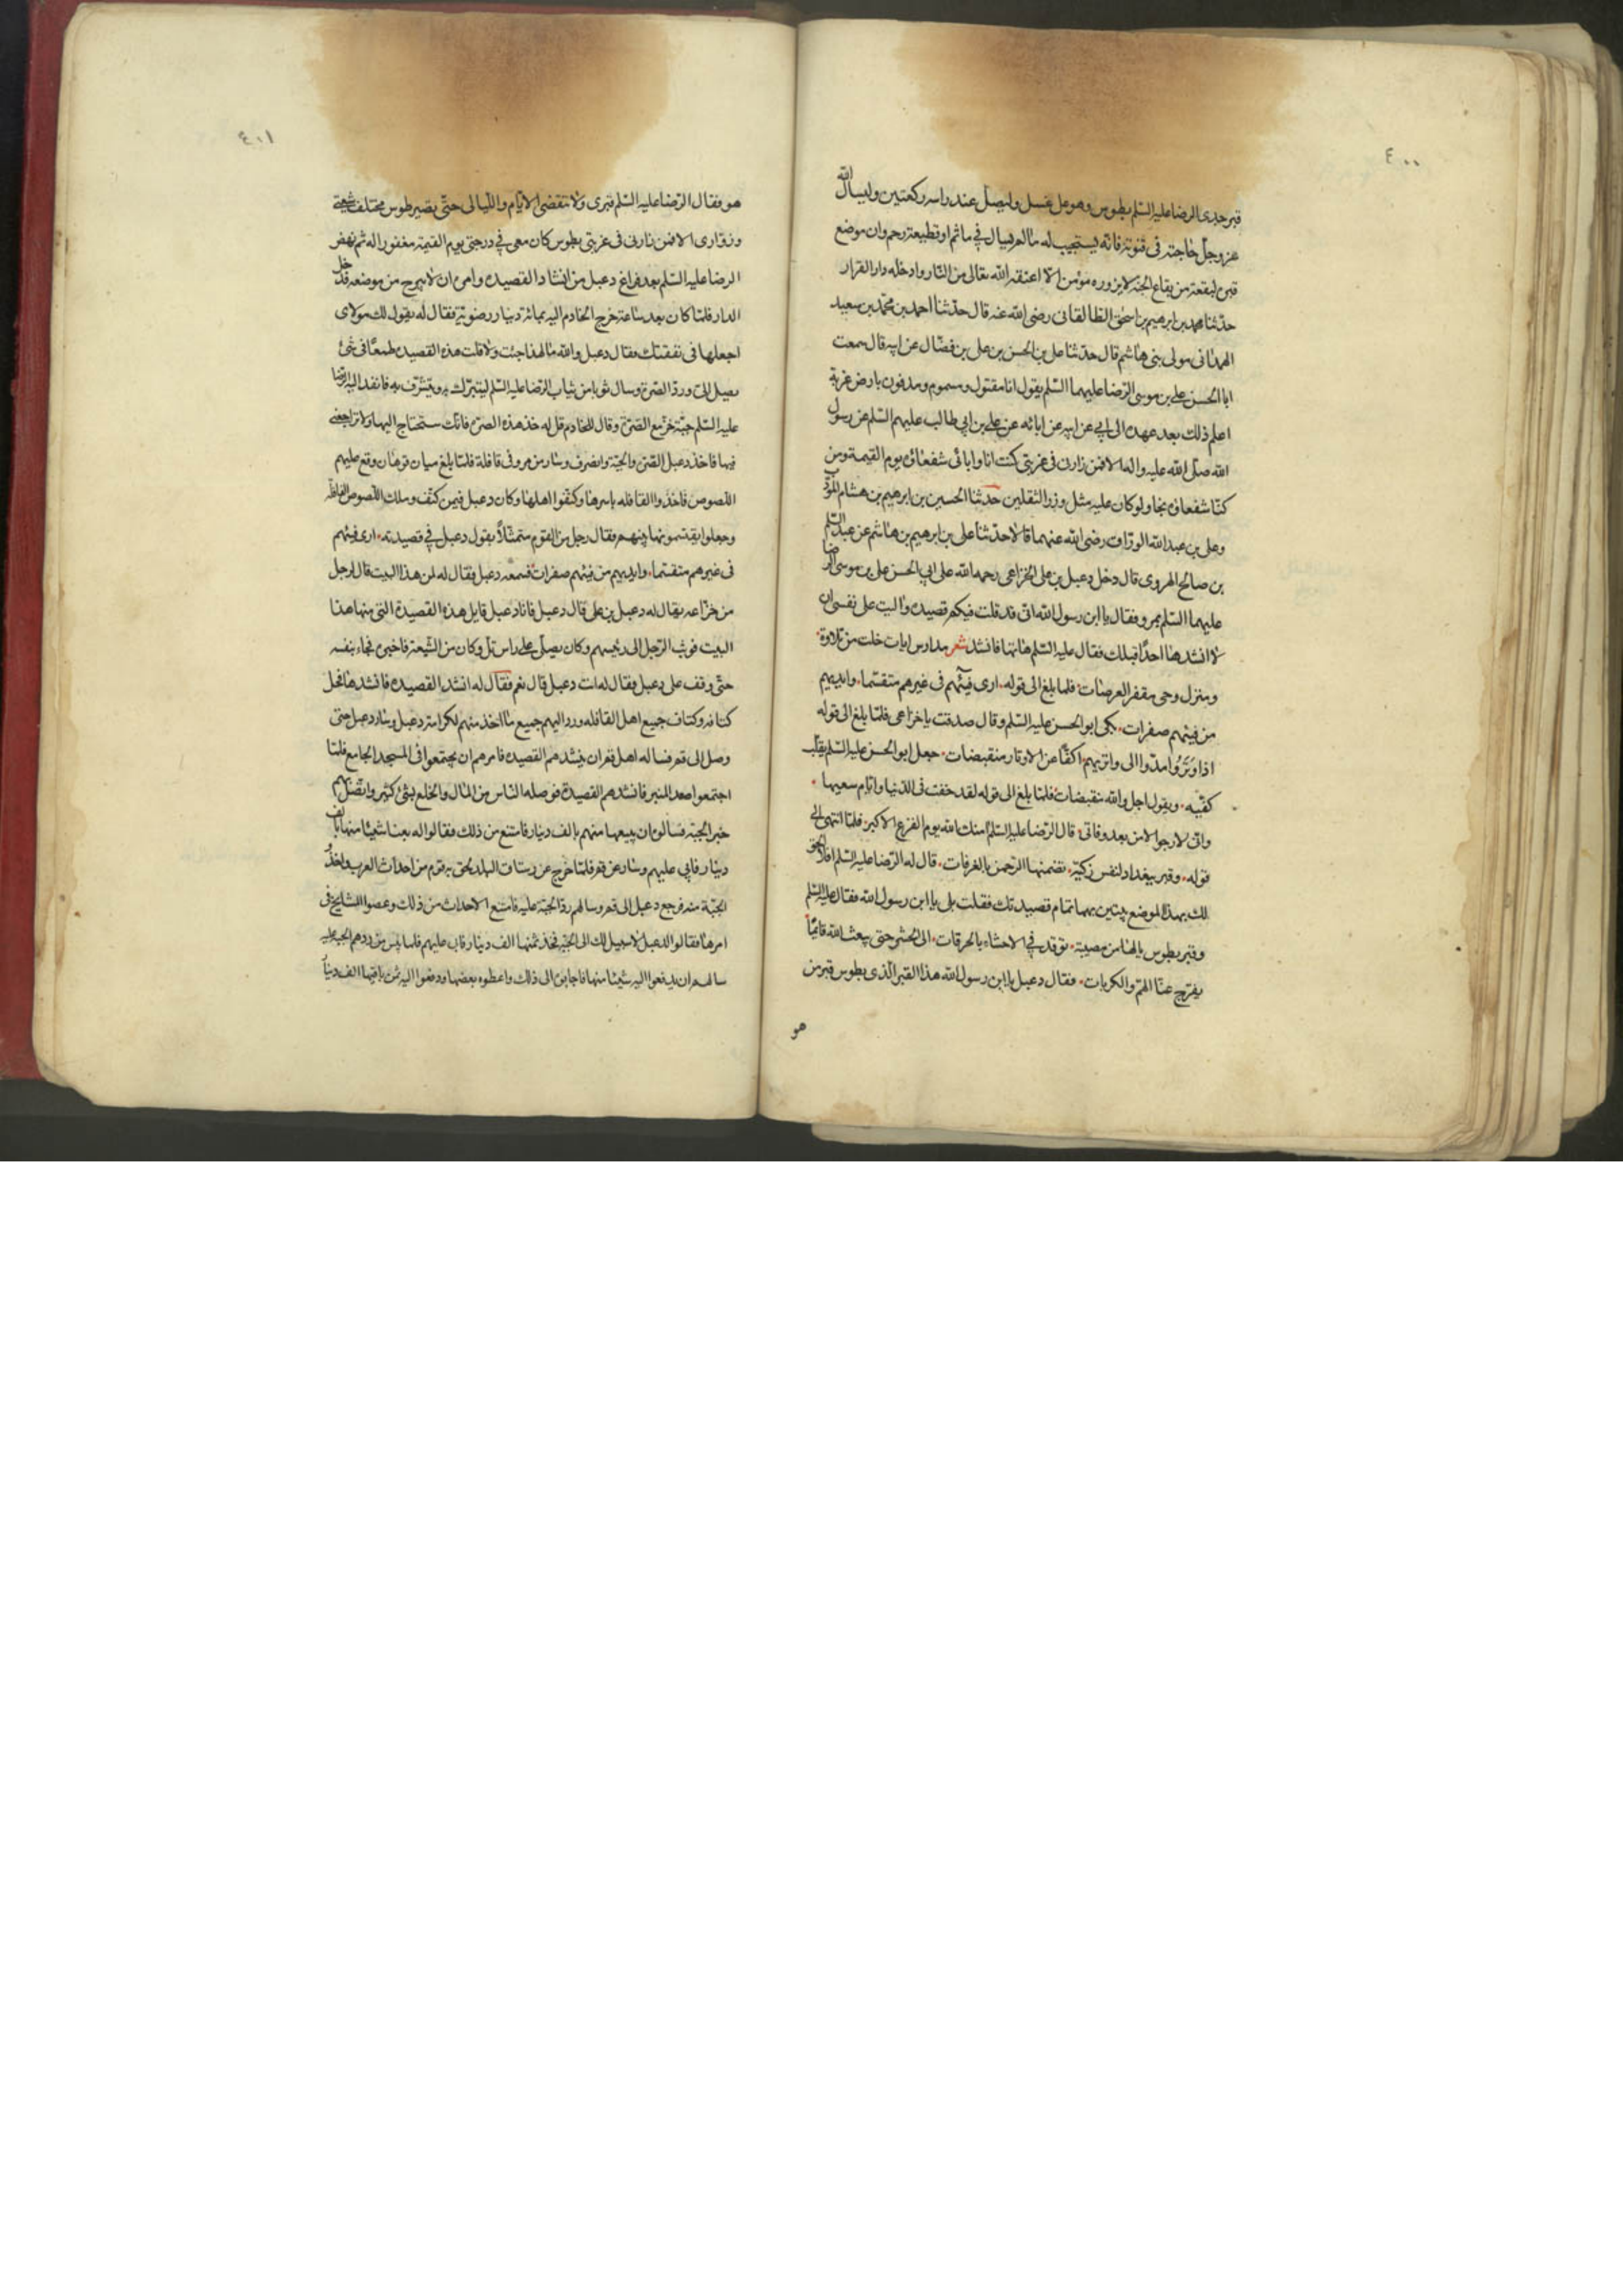 ٤٠٠
قبر جدى الرضا عليه السّلم بطوس وهو على غسل وليصلّ عند راسه ركعتين وليسال الله
عز وجل حاجته فى قنوته فانّه يستجيب له ما لم يسال في ماثم او قطيعة رحم وان موضع
قبره لبقعة من بقاع الجنة لا يزوره مؤمن الا اعتقه الله تعالى من النّار وادخله دار القرار
حدّثنا محمد بن ابرهيم بن اسحق الطالقانى رضى الله عنه قال حدّثنا احمد بن محمّد بن سعيد
الهمدانى مولى بنى هاشم قال حدّثنا على بن الحسن بن على بن فضّال عن ابيه قال سمعت
ابا الحسن على بن موسى الرّضا عليهما السّلم يقول انا مقتول ومسموم ومدفون بارض غربة
اعلم ذلك بعهد عهده الى ابي عن ابيه عن ابائه عن على بن ابي طالب عليهم السّلم عن رسول
الله صلى الله عليه واله الا فمن زارنى فى غربتى كنت انا وابائى شفعاؤه يوم القيمة ومن
كنّا شفعاؤه نجا ولو كان عليه مثل وزر الثقلين حدثنا الحسين بن ابرهيم بن هشام المؤدّب
وعلى بن عبد الله الورّاق رضى الله عنهما قالا حدّثنا على بن ابرهيم بن هاشم عن عبد السّلم
بن صالح الهروى قال دخل دعبل بن على الخزاعى رحمه الله على ابي الحسن على بن موسى الرضا
عليهما السّلم بمرو فقال يا ابن رسول الله انى قد قلت فيكم قصيدة واليت على نفسى ان
لا انشدها احدًا قبلك فقال عليه السّلم هاتها فانشد شعر مدارس ايات خلت من تلاوة
ومنزل وحى مقفر العرصات فلما بلغ الى قوله ارى فيئهم فى غيرهم متقسّما وايديهم
من فيئهم صفرات بكى ابو الحسن عليه السّلم وقال صدقت يا خزاعى فلمّا بلغ الى قوله
اذا وتروا مدّوا الى واتريهم اكفًّا عن الاوتار منقبضات جعل ابو الحسن عليه السّلم يقلّب
كفّيه ويقول اجل والله منقبضات فلمّا بلغ الى قوله لقد خفت فى الدّنيا وايّام سعيها
وانى لارجو الامن بعد وفاتى قال الرّضا عليه السّلم امنك الله يوم الفزع الاكبر فلمّا انتهى الى
قوله وقبر ببغداد لنفس زكيّة تضمنها الرّحمن بالغرفات قال له الرّضا عليه السّلم افلا الحق
لك بهذا الموضع بيتين بهما تمام قصيدتك فقلت بلى يا ابن رسول الله فقال عليه السّلم
وقبر بطوس يا لها من مصيبة توقد في الاحشاء بالحرقات الى الحشر حتى يبعث الله قائمًا
يفرّج عنّا الهمّ والكربات فقال دعبل يا ابن رسول الله هذا القبر الّذى بطوس قبر من
هو
٤٠١
هو فقال الرّضا عليه السّلم قبرى ولا تنقضى الايّام واللّيالى حتّى يصير طوس مختلف شيعتى
وزوّارى الا فمن زارنى فى غربتى بطوس كان معى في درجتى يوم القيمة مغفورا له ثم نهض
الرضا عليه السّلم بعد فراغ دعبل من انشاد القصيدة وامره ان لا يبرح من موضعه فدخل
الدار فلمّا كان بعد ساعة خرج الخادم اليه بمائة دينار رضوية فقال له يقول لك مولاى
اجعلها فى نفقتك فقال دعبل والله ما لهذا جئت ولا قلت هذه القصيدة طمعًا فى شئ
يصل الىّ وردّ الصرّة وسال ثوبا من ثياب الرّضا عليه السّلم ليتبرّك به ويتشرّف به فانفذ اليه الرّضا
عليه السّلم جبّة خزّ مع الصّرّة وقال للخادم قل له خذ هذه الصرّة فانّك ستحتاج اليها ولا تراجعنى
فيها فاخذ دعبل الصّرّة والجبّة وانصرف وسار من مرو فى قافلة فلمّا بلغ ميان قوهان وقع عليهم
اللّصوص فاخذوا القافله باسرها وكتّفوا اهلها وكان دعبل فيمن كتّف وملك اللّصوص القافلة
وجعلوا يقتسمونها بينهم فقال رجل من القوم متمثّلاً بقول دعبل في قصيدته ارى فيئهم
فى غيرهم متقسّما وايديهم من فيئهم صفرات فسمعه دعبل فقال له لمن هذا البيت قال لرجل
من خزاعه يقال له دعبل بن على قال دعبل فانا دعبل قايل هذه القصيدة التى منها هذا
البيت فوثب الرّجل الى رئيسهم وكان يصلّى على راس تلّ وكان من الشّيعة فاخبره فجاء بنفسه
حتّى وقف على دعبل فقال له انت دعبل قال نعم فقال له انشد القصيدة فانشدها فحلّ
كتافه وكتاف جميع اهل القافله وردّ اليهم جميع ما اخذ منهم لكرامة دعبل وسار دعبل حتى
وصل الى قم فساله اهل قم ان ينشدهم القصيدة فامرهم ان يجتمعوا فى المسجد الجامع فلمّا
اجتمعوا صعد المنبر فانشدهم القصيدة فوصله النّاس من المال والخلع بشئ كثير واتّصل بهم
خبر الجبّة فسالوه ان يبيعها منهم بالف دينار فامتنع من ذلك فقالوا له بعنا شيئا منها بالف
دينار فابى عليهم وسار عن قم فلمّا خرج عن رستاق البلد لحق به قوم من احداث العرب واخذوا
الجبّة منه فرجع دعبل الى قم وسالهم ردّ الجبّة عليه فامتنع الاحداث من ذلك وعصوا المشايخ فى
امرها فقالوا لدعبل لا سبيل لك الى الجبّة فخذ ثمنها الف دينار فابى عليهم فلما يئس من ردهم الجبة عليه
سالهم ان يدفعوا اليه شيئا منها فاجابوه الى ذلك واعطوه بعضها ودفعوا اليه ثمن باقيها الف دينار